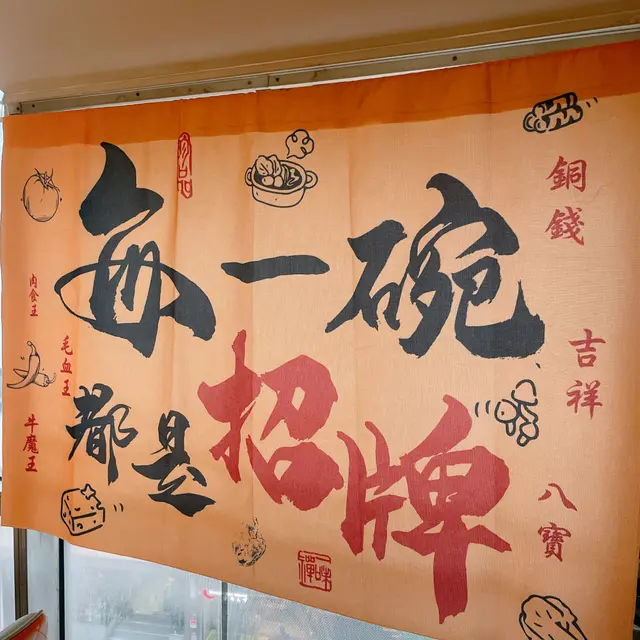 每一碗
都是招牌
銅錢
吉祥
八寶
肉食王
毛血王
牛魔王